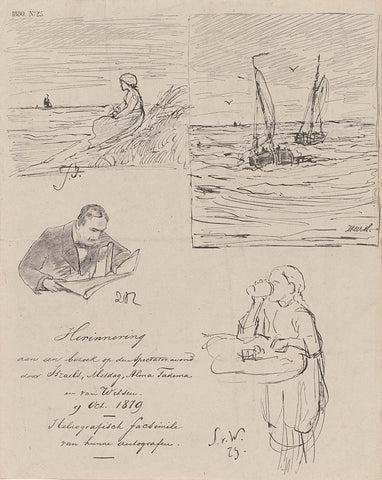 1880. No. 25.
J I.
HWM.
Herinnering
aan een bezoek op den Spectator avond
door Israels, Mesdag, Alma Tadema
en van Witsen.
9 Oct. 1879
Heliografisch facsimile
van hunne autografieen.
S. v. W.
79.